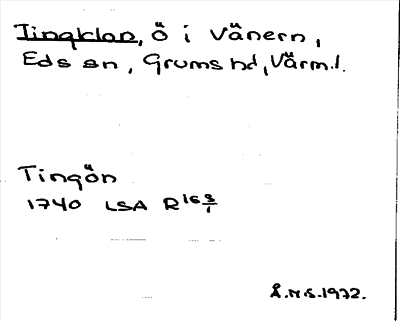 Tingklan, ö i Vänern,
Eds sn, Grums hd, Värml.
Tingön
1740 LSA R16 3/1
Å.N.S.1972.